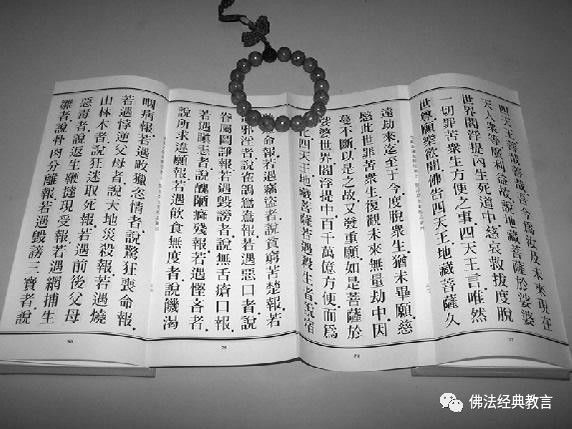 四天王善哉善哉吾今為汝及未來現在
天人眾等廣利益故說地藏菩薩於娑婆
世界閻浮提內生死道中慈哀救拔度脫
一切罪苦眾生方便之事四天王言唯然
世尊願樂欲聞佛告四天王地藏菩薩久
遠劫來迄至于今度脫眾生猶未畢願慈
愍此世罪苦眾生復觀未來無量劫中因
蔓不斷以是之故又發重願如是菩薩於
娑婆世界閻浮提中百千萬億方便而為
化四天王地藏菩薩若遇殺生者說宿
命報若遇竊盜者說貧窮苦楚報若
邪淫者說雀鴿鴛鴦報若遇惡口者說
眷屬鬥諍報若遇毀謗者說無舌瘡口報
若遇瞋恚者說醜陋癃殘報若遇慳吝者
說所求違願報若遇飲食無度者說飢渴
咽病報若遇畋獵恣情者說驚狂喪命報
若遇悖逆父母者說天地災殺報若遇燒
山林木者說狂迷取死報若遇前後父母
惡毒者說返生鞭撻現受報若遇網捕生
雛者說骨肉分離報若遇毀謗三寶者說
佛法经典教言